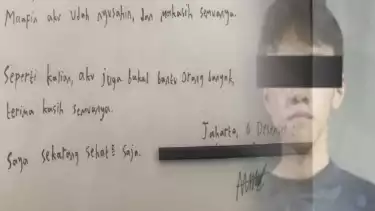 Maafin aku udah nyusahin, dan makasih semuanya.
Seperti kalian, aku juga bakal bantu orang banyak,
terima kasih semuanya.
Jakarta, 6
Saya sekarang sehat² saja.